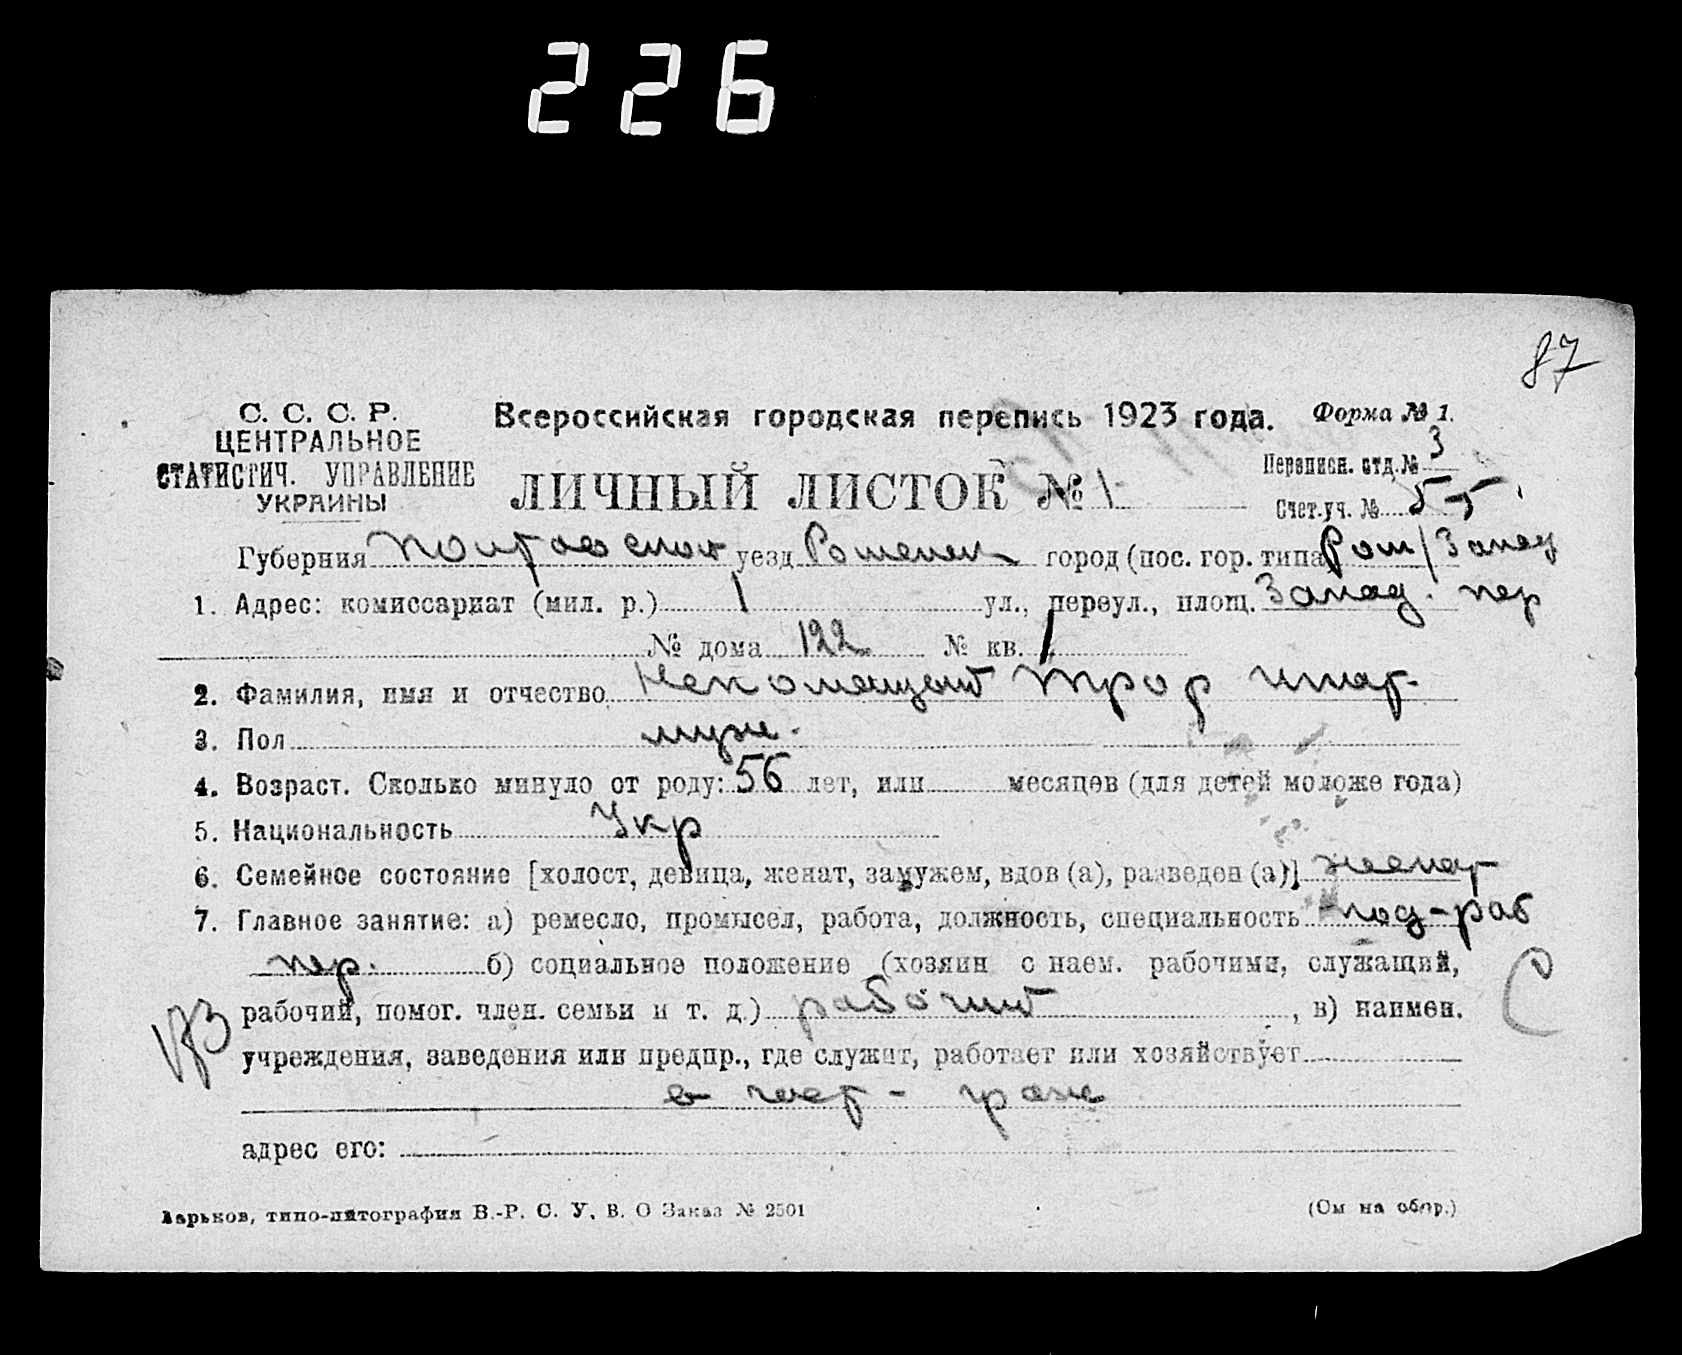 226
87
С. С. С. Р.
ЦЕНТРАЛЬНОЕ
СТАТИСТИЧ. УПРАВЛЕНИЕ
УКРАИНЫ
Всероссийская городская перепись 1923 года. Форма № 1.
ЛИЧНЫЙ ЛИСТОК № 1
Переписн. отд. № 3
Счет. уч. № 55
Губерния Полтавская уезд Роменск город (пос. гор. типа) Ром/Запад
1. Адрес: комиссариат (мил. р.) 1 ул., переул., площ. Запад. пер
№ дома 122 № кв. 1
2. Фамилия, имя и отчество
3. Пол муж.
4. Возраст. Сколько минуло от роду: 56 лет, или месяцев (для детей моложе года)
5. Национальность Укр
6. Семейное состояние [холост, девица, женат, замужем, вдов (а), разведен (а)] женат
7. Главное занятие: а) ремесло, промысел, работа, должность, специальность под-раб
пер. б) социальное положение (хозяин с наем. рабочими, служащий,
рабочий, помог. член. семьи и т. д.) рабочий, в) наимен.
учреждения, заведения или предпр., где служит, работает или хозяйствует
адрес его:
Харьков, типо-литография В.-Р. С. У. В. О Заказ № 2501 (См на обор.)